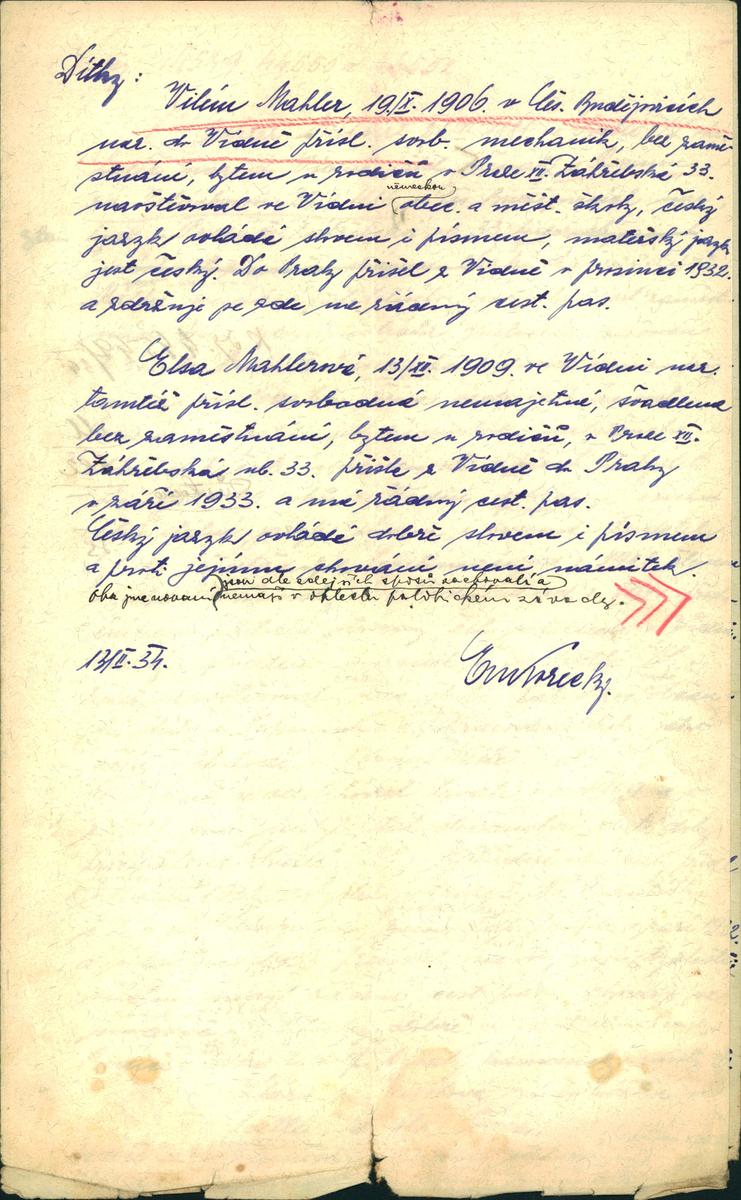 Dítky:
Vilém Mahler, 19/X. 1906. v Čes. Budějovicích
nar. do Vídně přísl. svob. mechanik, bez zamě-
stnání, bytem u rodičů v Praze XII. Záhřebská 33.
navštěvoval ve Vídni německou obec. a měšt. školy, český
jazyk ovládá slovem i písmem, mateřský jazyk
jest český. Do Prahy přišel z Vídně v prosinci 1932.
a zdržuje se zde na řádný cest. pas.
Elsa Mahlerová, 13/XII. 1909. ve Vídni nar.
tamtéž přísl. svobodná nemajetná, švadlena
bez zaměstnání, bytem u rodičů, v Praze XII.
Záhřebská ul. 33. přišla z Vídně do Prahy
v září 1933. a má řádný cest. pas.
Český jazyk ovládá dobře slovem i písmem
a proti jejímu chování není námitek.
jsou dle zdejších spisů zachovalí a
Oba jmenovaní nemají v ohledu politickém závady.
13/II. 34.